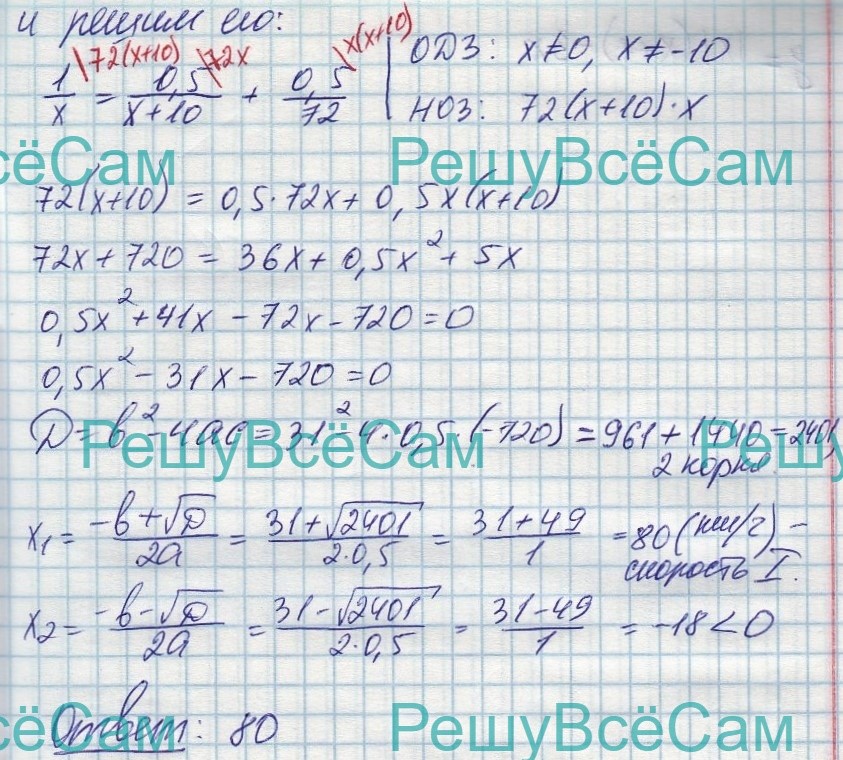 и решим его:
1/x \72(x+10) = 0,5/(x+10) \72x + 0,5/72 \x(x+10) | ОДЗ: x≠0, x≠-10
НОЗ: 72(x+10)·x
РешуВсёСам РешуВсёСам
72(x+10) = 0,5·72x + 0,5x(x+10)
72x+720 = 36x+0,5x²+5x
0,5x²+41x-72x-720=0
0,5x²-31x-720=0
D=b²-4ac=31²-4·0,5·(-720)=961+1440=2401,
2 корня
РешуВсёСам РешуВсёСам
x₁ = (-b+√D)/2a = (31+√2401)/(2·0,5) = (31+49)/1 = 80 (км/ч) –
скорость I.
x₂ = (-b-√D)/2a = (31-√2401)/(2·0,5) = (31-49)/1 = -18<0
Ответ: 80
РешуВсёСам РешуВсёСам